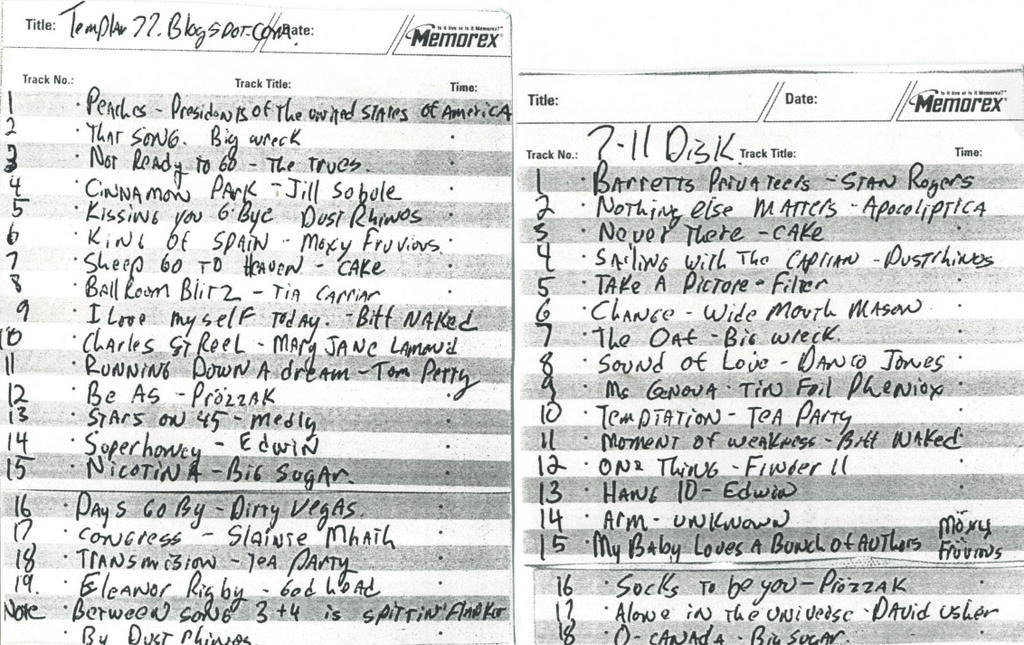 Title: Templar77.BlogSpot.com Date: Is it live or is it Memorex?™ Memorex
Track No.: Track Title: Time:
1 · Peaches - Presidents of The united States of America
2 · That Song. Big wreck
3 · Not Ready to Go - The Trues.
4 · Cinnamon Park - Jill Sobule
5 · Kissing you G'Bye Dust Rhinos
6 · King of Spain - Moxy Fruvious.
7 · Sheep Go To Heaven - Cake
8 · Ball Room Blitz - Tia Carriar
9 · I Love myself Today. - Biff Naked
10 · Charles St Reel - Mary Jane Lamond
11 · Running Down A dream - Tom Petty
12 · Be As - Prozzak
13 · Stars on 45 - Medly
14 · Superhoney - Edwin
15 · Nicotina - Big Sugar.
16 · Days Go By - Dirty Vegas.
17 · Congress - Slainte Mhath
18 · Transmission - Tea Party
19. · Eleanor Rigby - God head
Note · Between song 3+4 is Spittin'
· By Dust Rhinos
Title: Date: Is it live or is it Memorex?™ Memorex
7-11 Disk.
Track No.: Track Title: Time:
1 · Barretts Privateers - Stan Rogers
2 · Nothing else Matters - Apocoliptica
3 · Never There - Cake
4 · Sailing with The Captian - Dustrhinos
5 · Take A Picture - Filter
6 · Change - Wide Mouth Mason
7 · The Oaf - Big wreck.
8 · Sound of Love - Danco Jones
9 · Ms Genova - Tin Foil Pheniox
10 · Temptation - Tea Party
11 · Moment of weakness - Biff Naked
12 · One Thing - Finger 11
13 · Hang 10 - Edwin
14 · Arm - unknown
15 · My Baby Loves A Bunch of Authors Moxy Fruvious
16 · Socks To be you - Prozzak
17 · Alone in the universe - David usher
18 · O-Canada - Big Sugar.